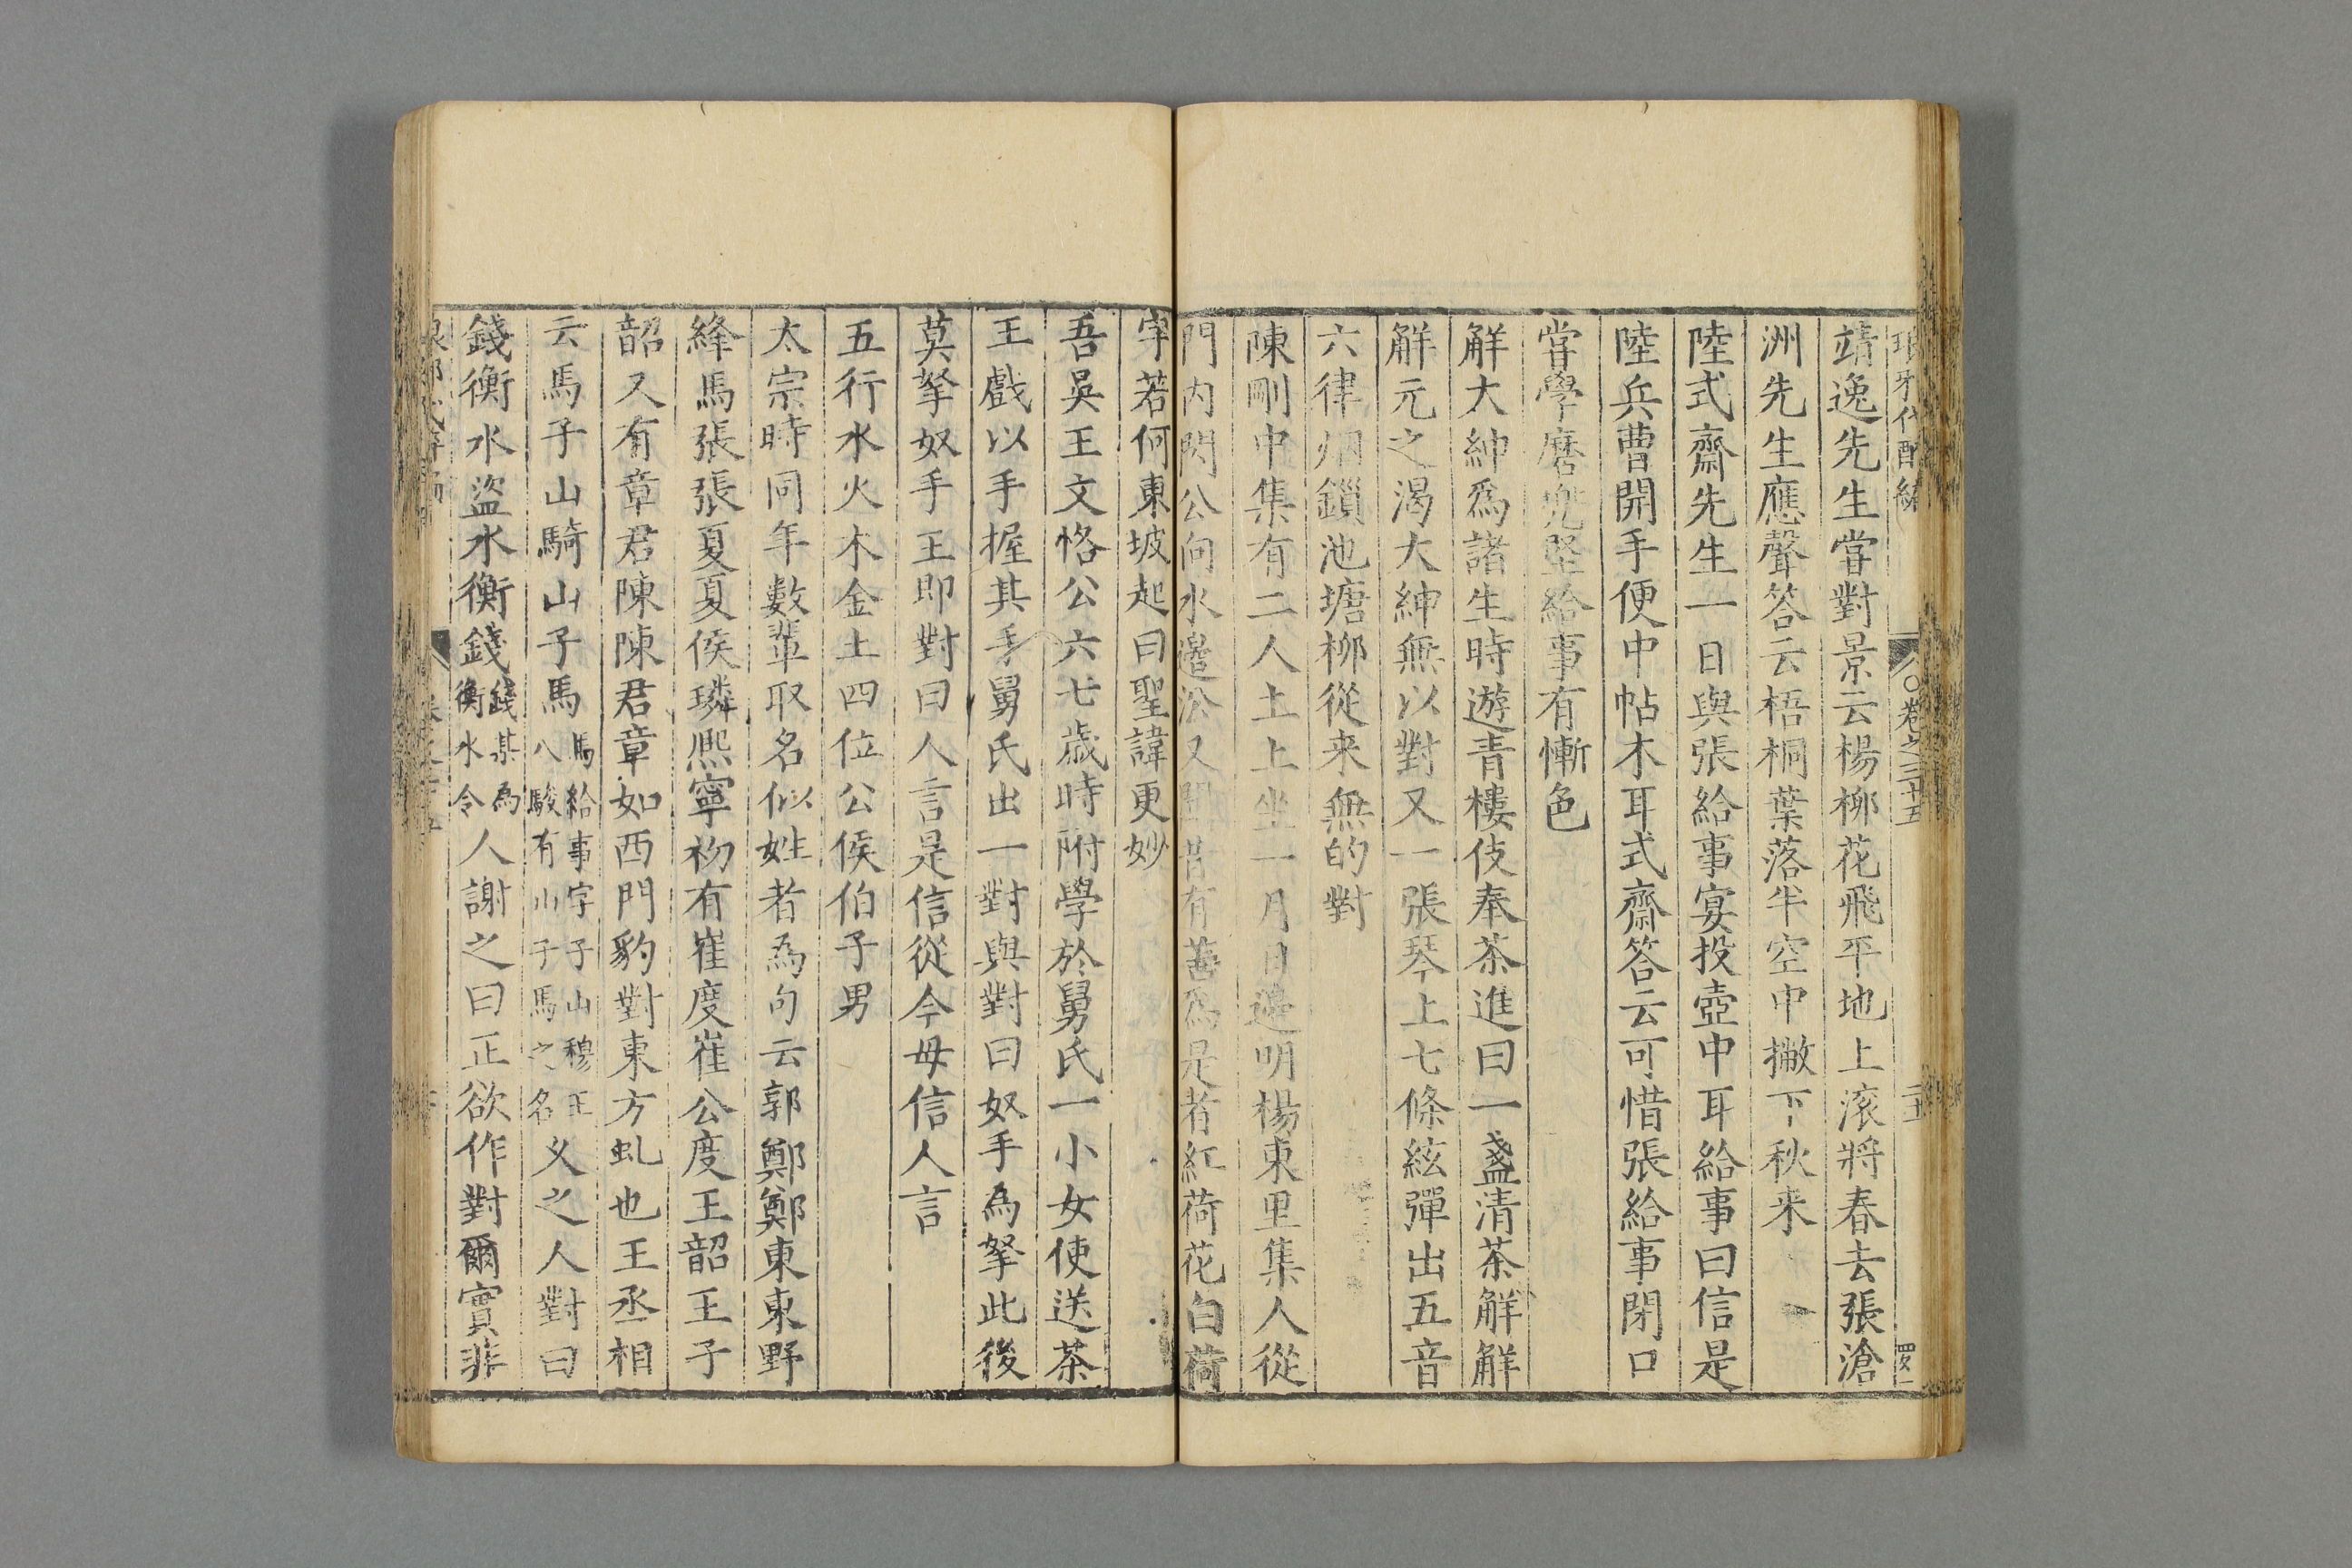 卷之三十五
靖逸先生嘗對景云楊柳花飛平地上滚將春去張滄
洲先生應聲答云梧桐葉落半空中撇下秋来
陸式齋先生一日與張給事宴投壺中耳給事曰信是
陸兵曹開手便中帖木耳式齋答云可惜張給事閉口
嘗學磨兜堅給事有慚色
解大紳爲諸生時遊青樓伎奉茶進曰一盞清茶解解
解元之渴大紳無以對又一張琴上七條絃彈出五音
六律烟鎖池塘柳從来無的對
陳剛中集有二人土上坐一月日邊明楊東里集人從
門内閃公向水邉公又昔有善爲是者紅荷花白荷
字若何東坡起曰聖諱更妙
吾吳王文恪公六七歲時附學於舅氏一小女使送茶
王戲以手握其手舅氏出一對與對曰奴手為拏此後
莫拏奴手王即對曰人言是信從今毋信人言
五行水火木金土四位公侯伯子男
太宗時同年數輩取名似姓者為句云郭鄭鄭東東野
絳馬張張夏夏侯璘熈寧初有崔度崔公度王韶王子
韶又有章君陳陳君章如西門豹對東方虬也王丞相
云馬子山騎山子馬
馬給事字子山穆王
八駿有山子馬之名
乂之人對曰
錢衡水盜水衡錢
錢某為
衡水令
人謝之曰正欲作對爾實非